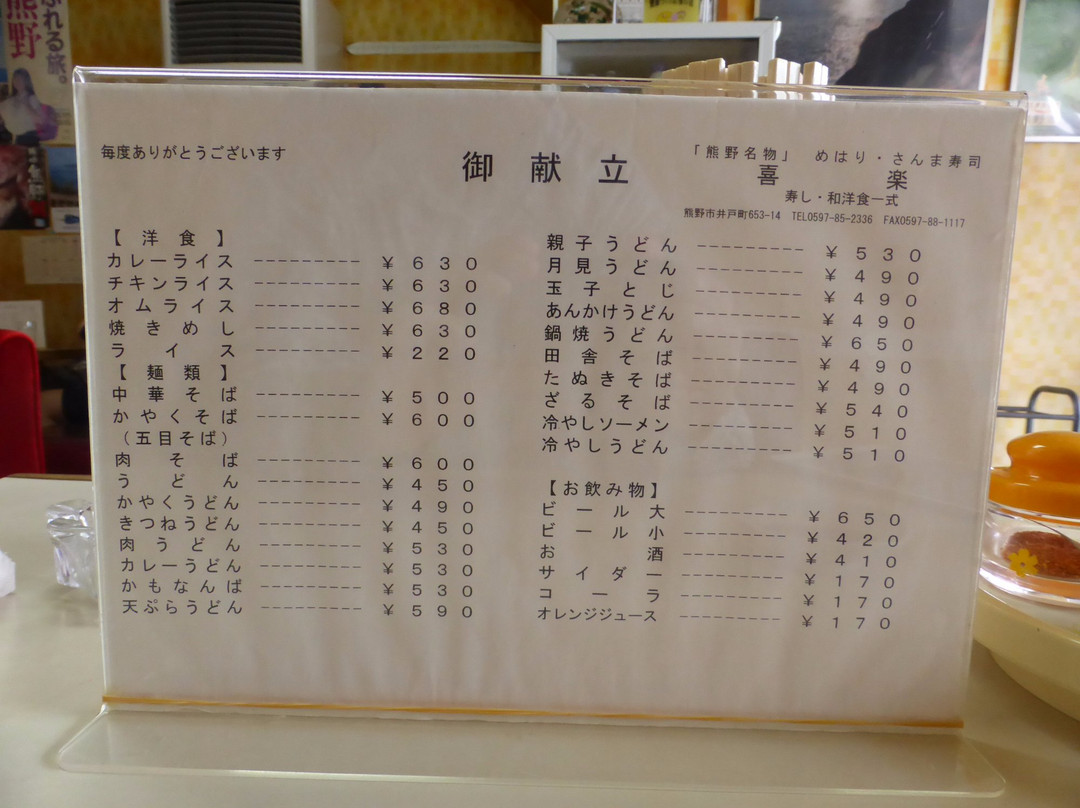 ふれる旅。
熊野
毎度ありがとうございます
御献立
「熊野名物」 めはり・さんま寿司
喜楽
寿し・和洋食一式
熊野市井戸町653-14 TEL0597-85-2336 FAX0597-88-1117
【洋食】
カレーライス ¥630
チキンライス ¥630
オムライス ¥680
焼きめし ¥630
ライス ¥220
【麺類】
中華そば ¥500
かやくそば ¥600
(五目そば)
肉そば ¥600
うどん ¥450
かやくうどん ¥490
きつねうどん ¥450
肉うどん ¥530
カレーうどん ¥530
かもなんば ¥530
天ぷらうどん ¥590
親子うどん ¥530
月見うどん ¥490
玉子とじ ¥490
あんかけうどん ¥490
鍋焼うどん ¥650
田舎そば ¥490
たぬきそば ¥490
ざるそば ¥540
冷やしソーメン ¥510
冷やしうどん ¥510
【お飲み物】
ビール大 ¥650
ビール小 ¥420
お酒 ¥410
サイダー ¥170
コーラ ¥170
オレンジジュース ¥170